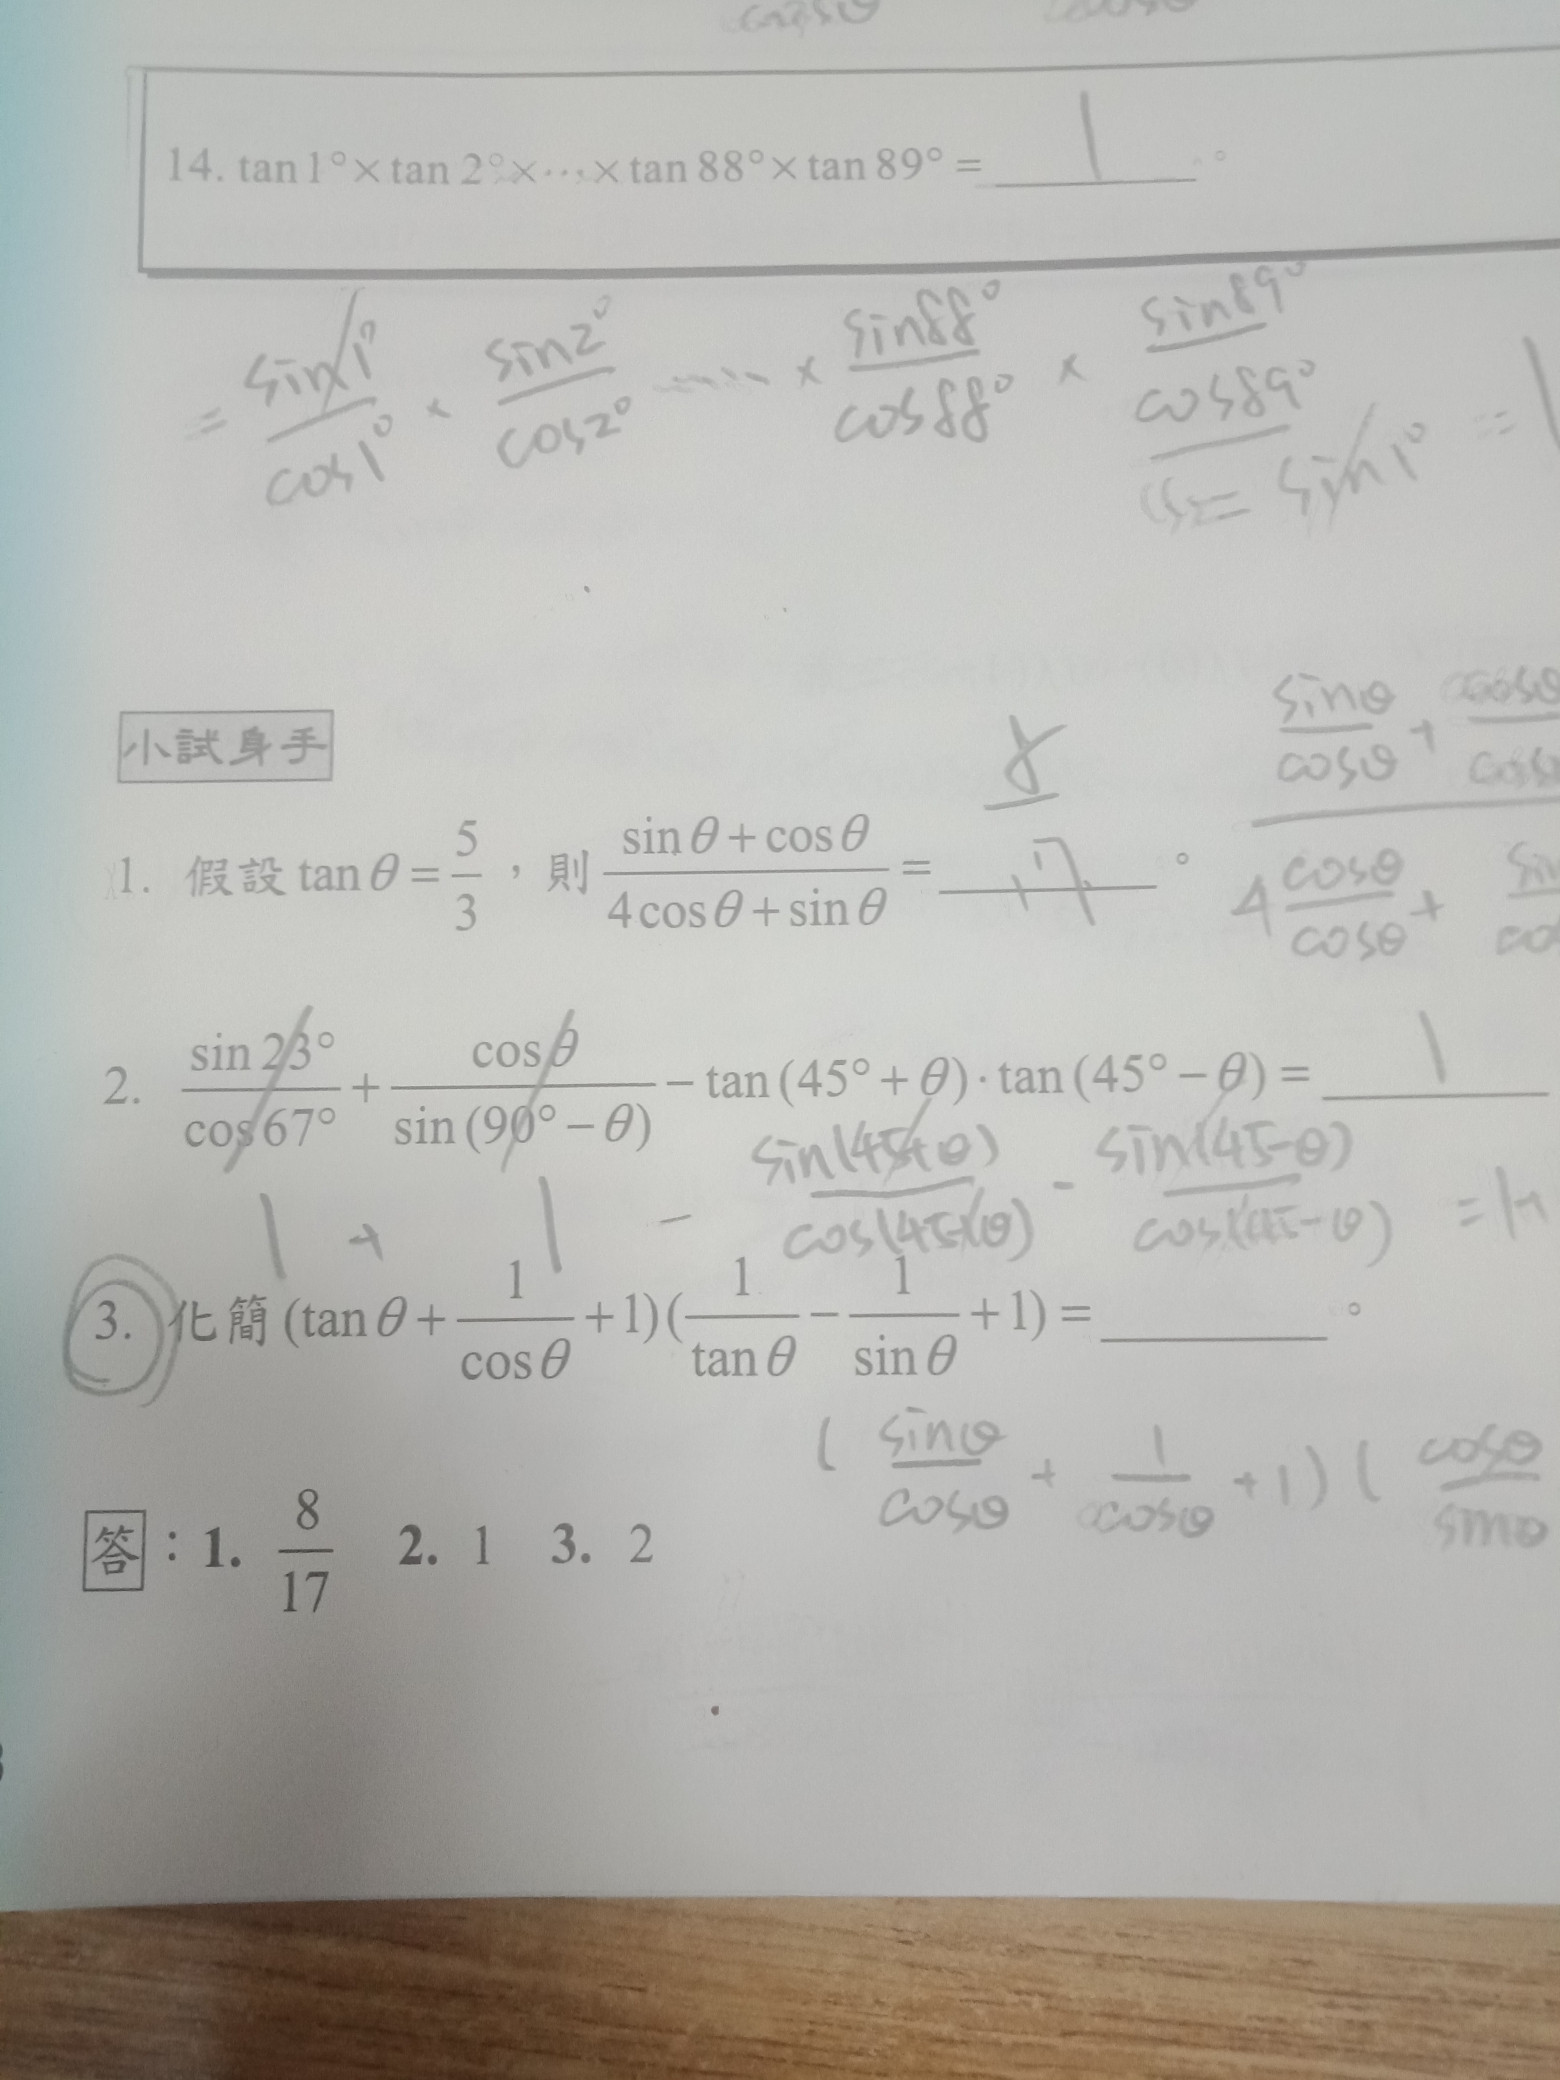 14. tan 1° × tan 2° × ⋯ × tan 88° × tan 89° = 1 。
= sin1°/cos1° × sin2°/cos2° ⋯⋯ × sin88°/cos88° × sin89°/cos89° = 1
= sin1°
小試身手
1. 假設 tan θ = 5/3,則 (sin θ + cos θ)/(4 cos θ + sin θ) = 8/17 。
sinθ/cosθ + cosθ/cosθ
4 cosθ/cosθ +
2. sin 23°/cos 67° + cos θ/sin (90° − θ) − tan (45° + θ) · tan (45° − θ) = 1
1 + 1 − sin(45+θ)/cos(45+θ) - sin(45-θ)/cos(45-θ) =
3. 化簡 (tan θ + 1/cos θ + 1)(1/tan θ − 1/sin θ + 1) = 。
(sinθ/cosθ + 1/cosθ + 1)(cosθ/sinθ
答:1. 8/17 2. 1 3. 2